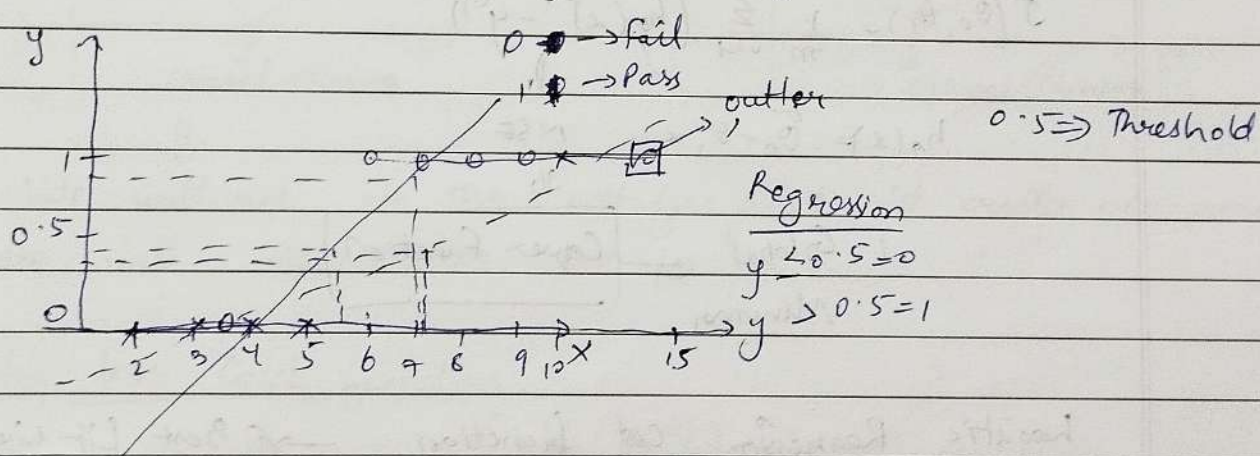 y
0 → Fail
1 → Pass
outlier
0.5 ⇒ Threshold
1
Regression
0.5
y ≤ 0.5 = 0
y > 0.5 = 1
0
2 3 4 5 6 7 8 9 10 x 15 y